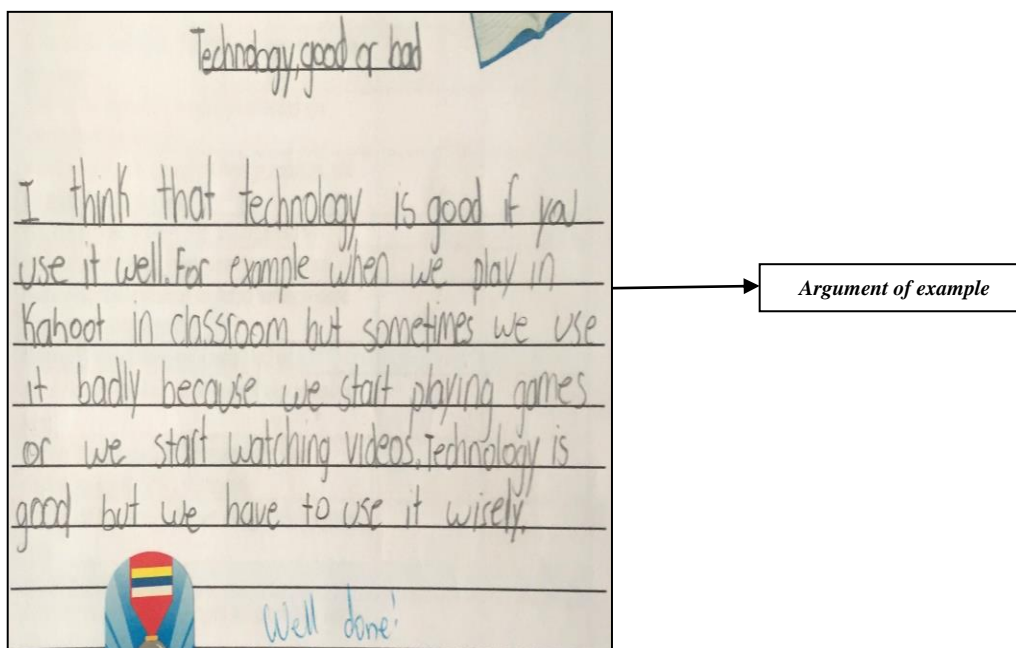 Technology, good or bad
I think that technology is good if you
use it well. For example when we play in
Kahoot in classroom but sometimes we use
it badly because we start playing games
or we start watching videos. Technology is
good but we have to use it wisely.
Well done!
Argument of example